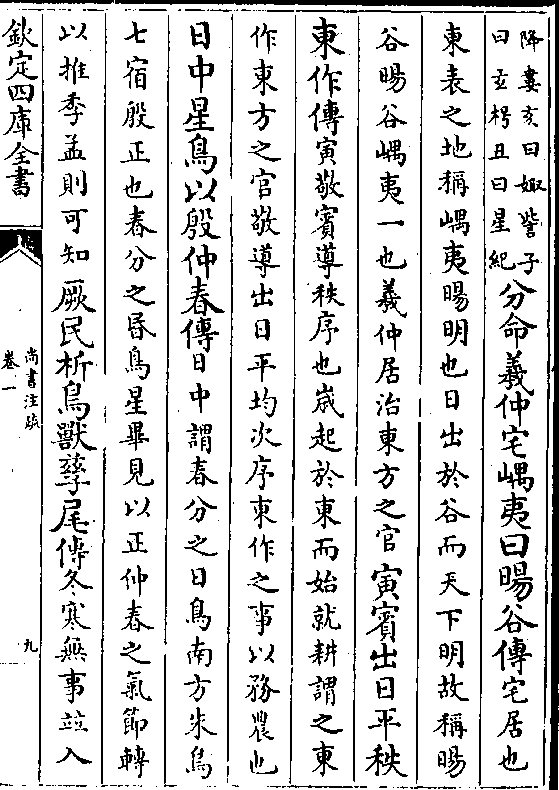 降婁亥曰娵訾子
曰玄枵丑曰星紀
分命羲仲宅嵎夷曰暘谷傳宅居也
東表之地稱嵎夷暘明也日出於谷而天下明故稱暘
谷暘谷嵎夷一也羲仲居治東方之官寅賓出日平秩
東作傳寅敬賓導秩序也歲起於東而始就耕謂之東
作東方之官敬導出日平均次序東作之事以務農也
日中星鳥以殷仲春傳日中謂春分之日鳥南方朱鳥
七宿殷正也春分之昏鳥星畢見以正仲春之氣節轉
以推季孟則可知厥民析鳥獸孳尾傳冬寒無事並入
欽定四庫全書
尚書注疏
卷一
九